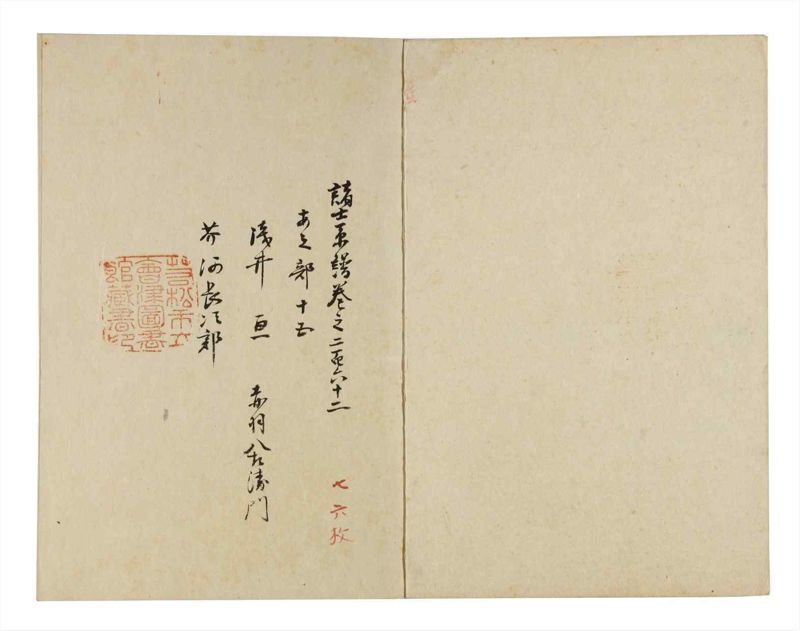 諸士系譜巻之二百六十二
七六枚
あ之部 十五
浅井 亘 赤羽八右衛門
芥河長次郎
若松市立
會津圖書
館藏書印